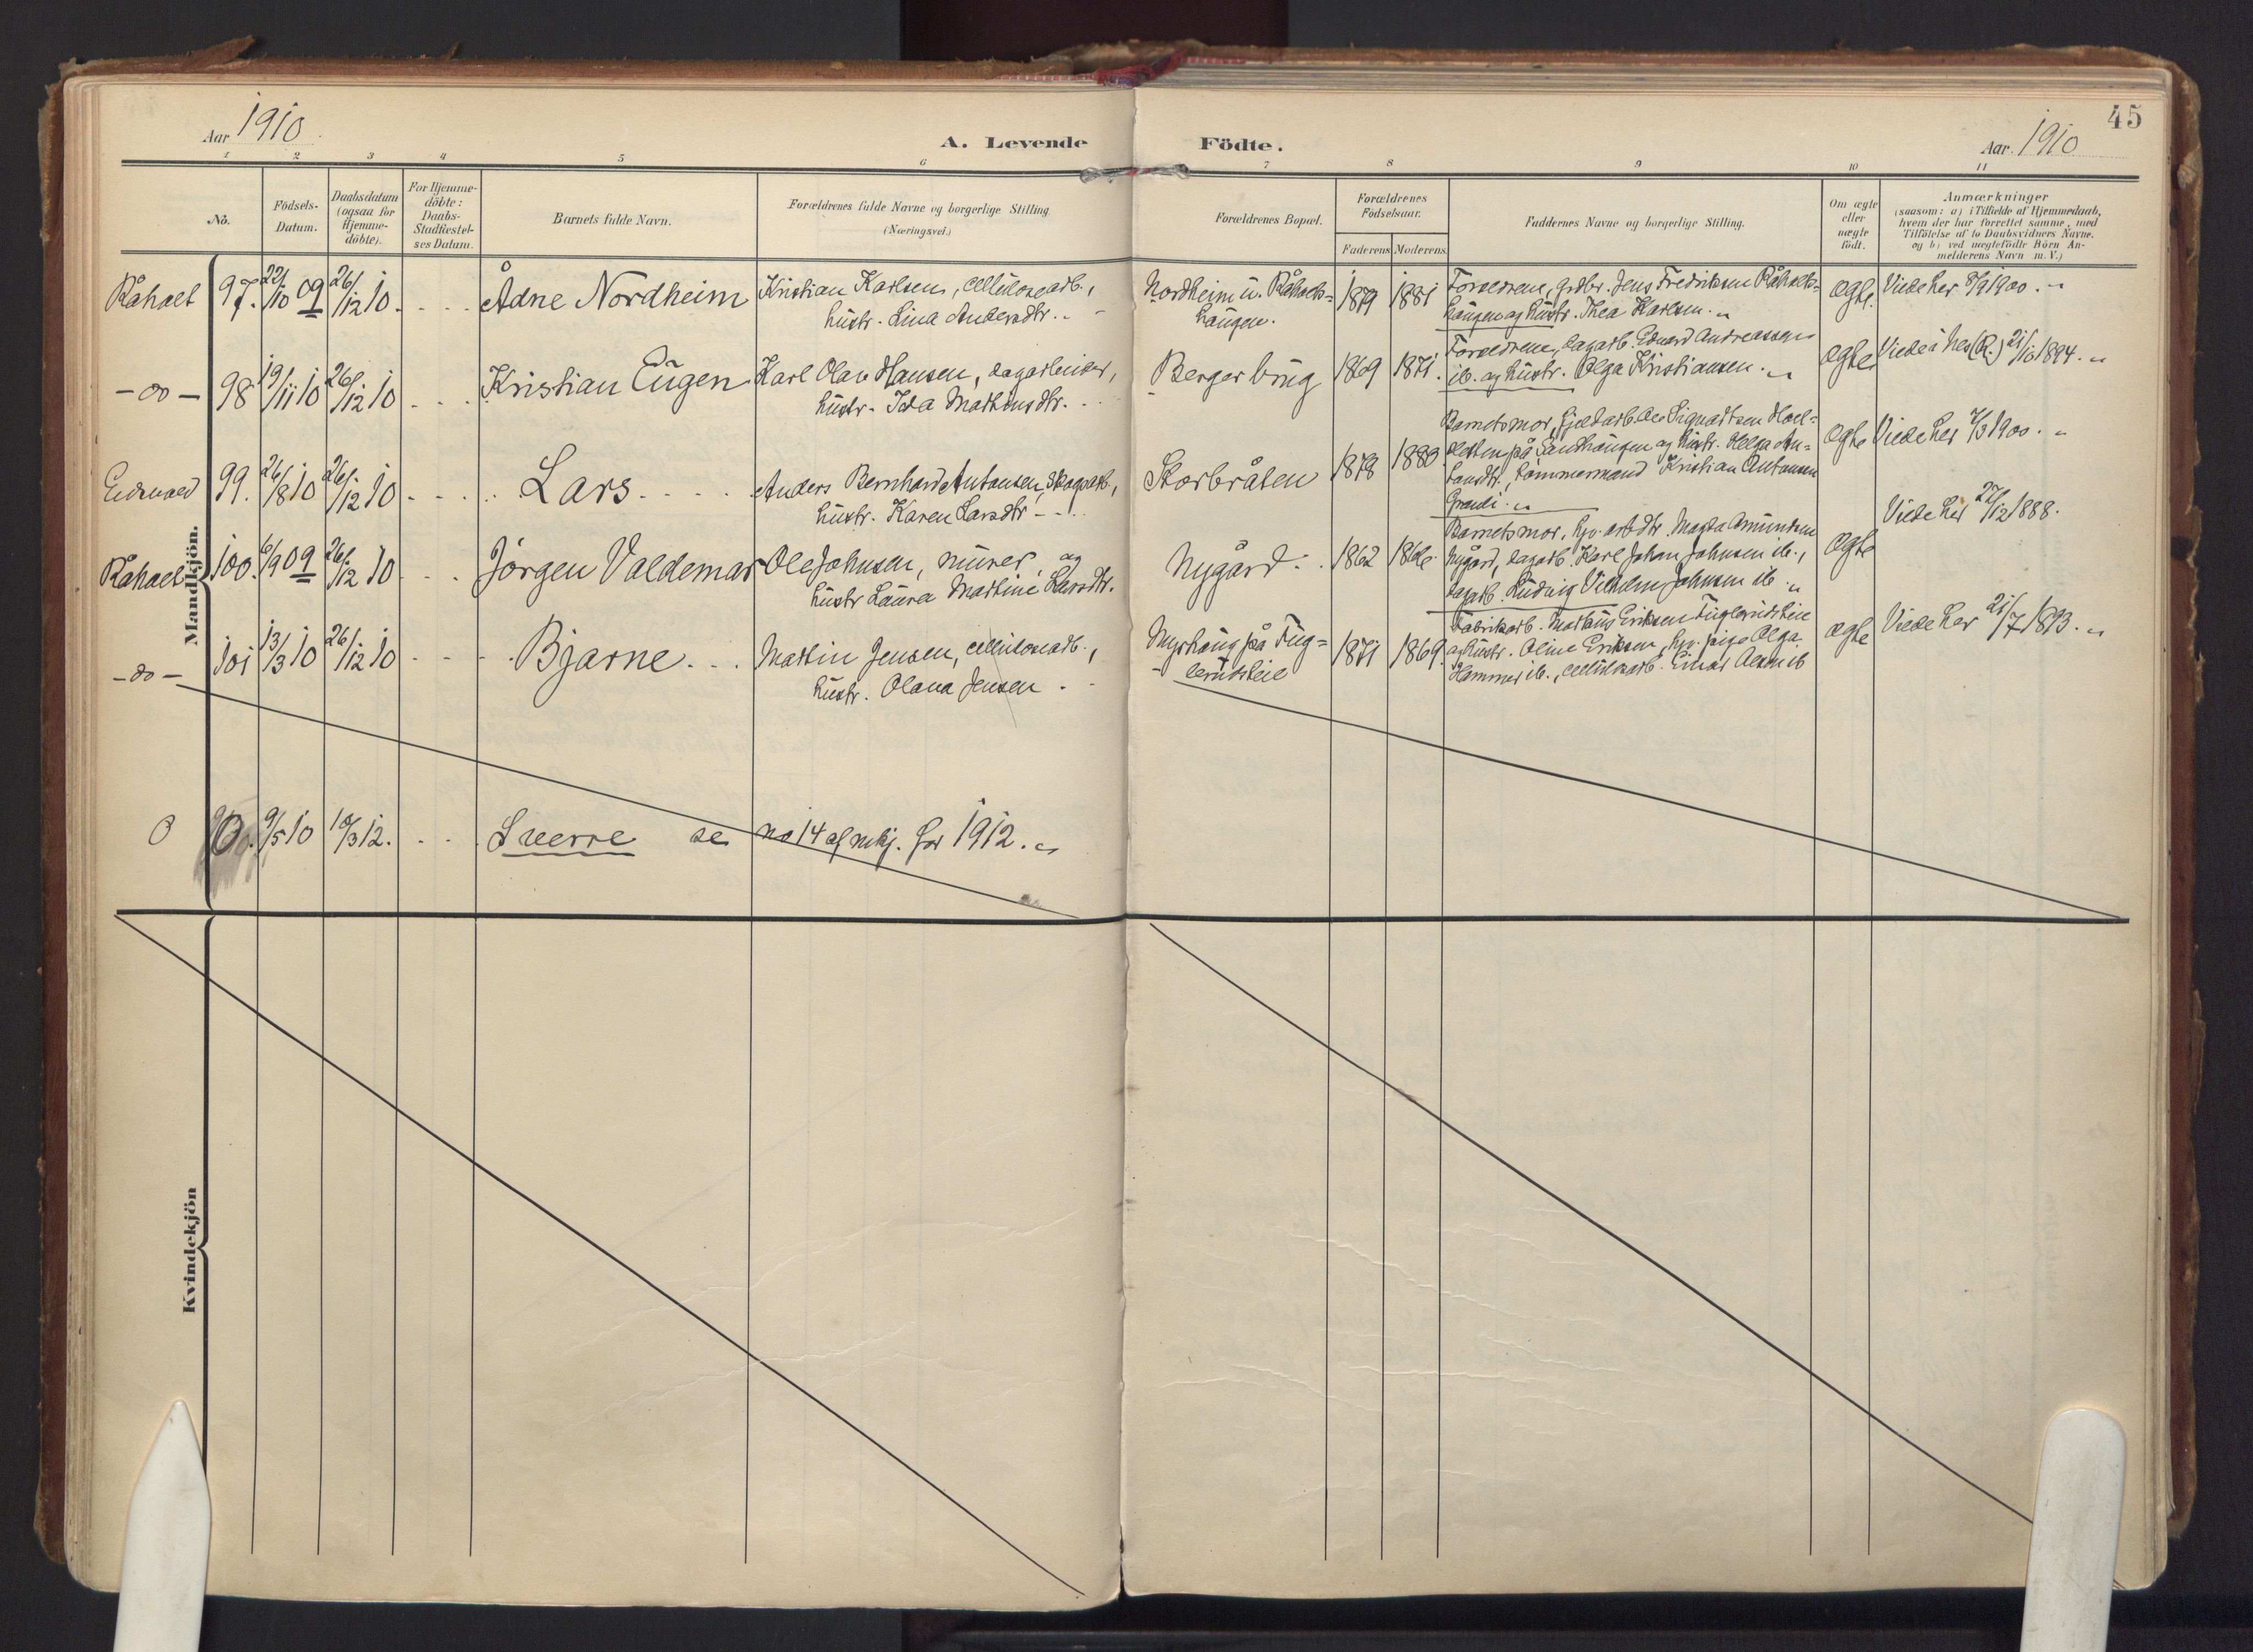 45
Aar 1910
A. Levende Födte.
Aar 1910
1 2 3 4 5 6 7 8 9 10 11
No.
Födsels-
Datum.
Daabsdatum
(ogsaa for
Hjemme-
döbte).
For Hjemme-
döbte:
Daabs-
Stadfæstel-
ses Datum.
Barnets fulde Navn.
Forældrenes fulde Navne og borgerlige Stilling
(Næringsvei.)
Forældrenes Bopæl.
Forældrenes
Födselsaar.
Faderens Moderens
Faddernes Navne og borgerlige Stilling.
Om ægte
eller
uægte
födt.
Anmærkninger
(saasom: a) i Tilfælde af Hjemmedaab,
hvem der har forrettet samme, med
Tilföielse af to Daabsvidners Navne.
og b) ved uægtefödte Börn An-
melderens Navn m. V.)
Mandkjön.
Råholt 97. 22/10 09 26/12 10. Ådne Nordheim
Kristian Karlsen, cellulosearb.,
hustr. Lina Andersdtr.
Nordheim u. Råholts-
haugen.
1879 1881
Forældrene, grdbr. Jens Fredriksen Råholts-
haugen og hustr. Thea Karlsen.
ægte. Viede her 8/9 1900.
-do- 98 19/11 10 26/12 10 Kristian Eugen
Karl Olav Hansen, dagarbeider,
hustr. Ida Matheusdtr.
Berger brug 1869 1871.
Forældrene, dagarb. Edvard Andreassen
ib. og hustr. Olga Kristiansen.
ægte Viede i Nes (R.) 21/10 1894.
Eidsvold 99. 26/8 10 26/12 10 Lars
Anders Bernhard Antonsen, skogarb.,
hustr. Karen Larsdtr.
Storbråten 1878 1880
Barnets mor,
på Sandhaugen og hustr. Helga An-
tonsdtr., tømmermand Kristian Antonsen
ægte Viede her 1900.
Råholt 100. 6/9 09 26/12 10 Jørgen Valdemar
Ole Johnsen, murer, og
hustr Laura Martine Larsdtr.
Nygård 1862 1866
Barnets mor, Magda Amundsen
Nygård, dagarb. Karl Johan Johnsen ib.,
dagarb. Ludvig Vilhelm Johnsen ib.
ægte Viede her 27/12 1888.
-do- 101 13/3 10 26/12 10 Bjarne
Martin Jensen, cellulosearb.,
hustr. Olava Jensen.
Myrhaug på Fug-
lerudseie
1871 1869.
Fabrikarb. Mathæus Eriksen Fuglerudseie
og hustr. Oline Eriksen, pige Olga
Hammer ib., cellulosearb. Einar ib
ægte Viede her 21/7 1893.
0 9/5 10 10/3 12. Sverre se no 14 af mkj. for 1912.
Kvindekjön